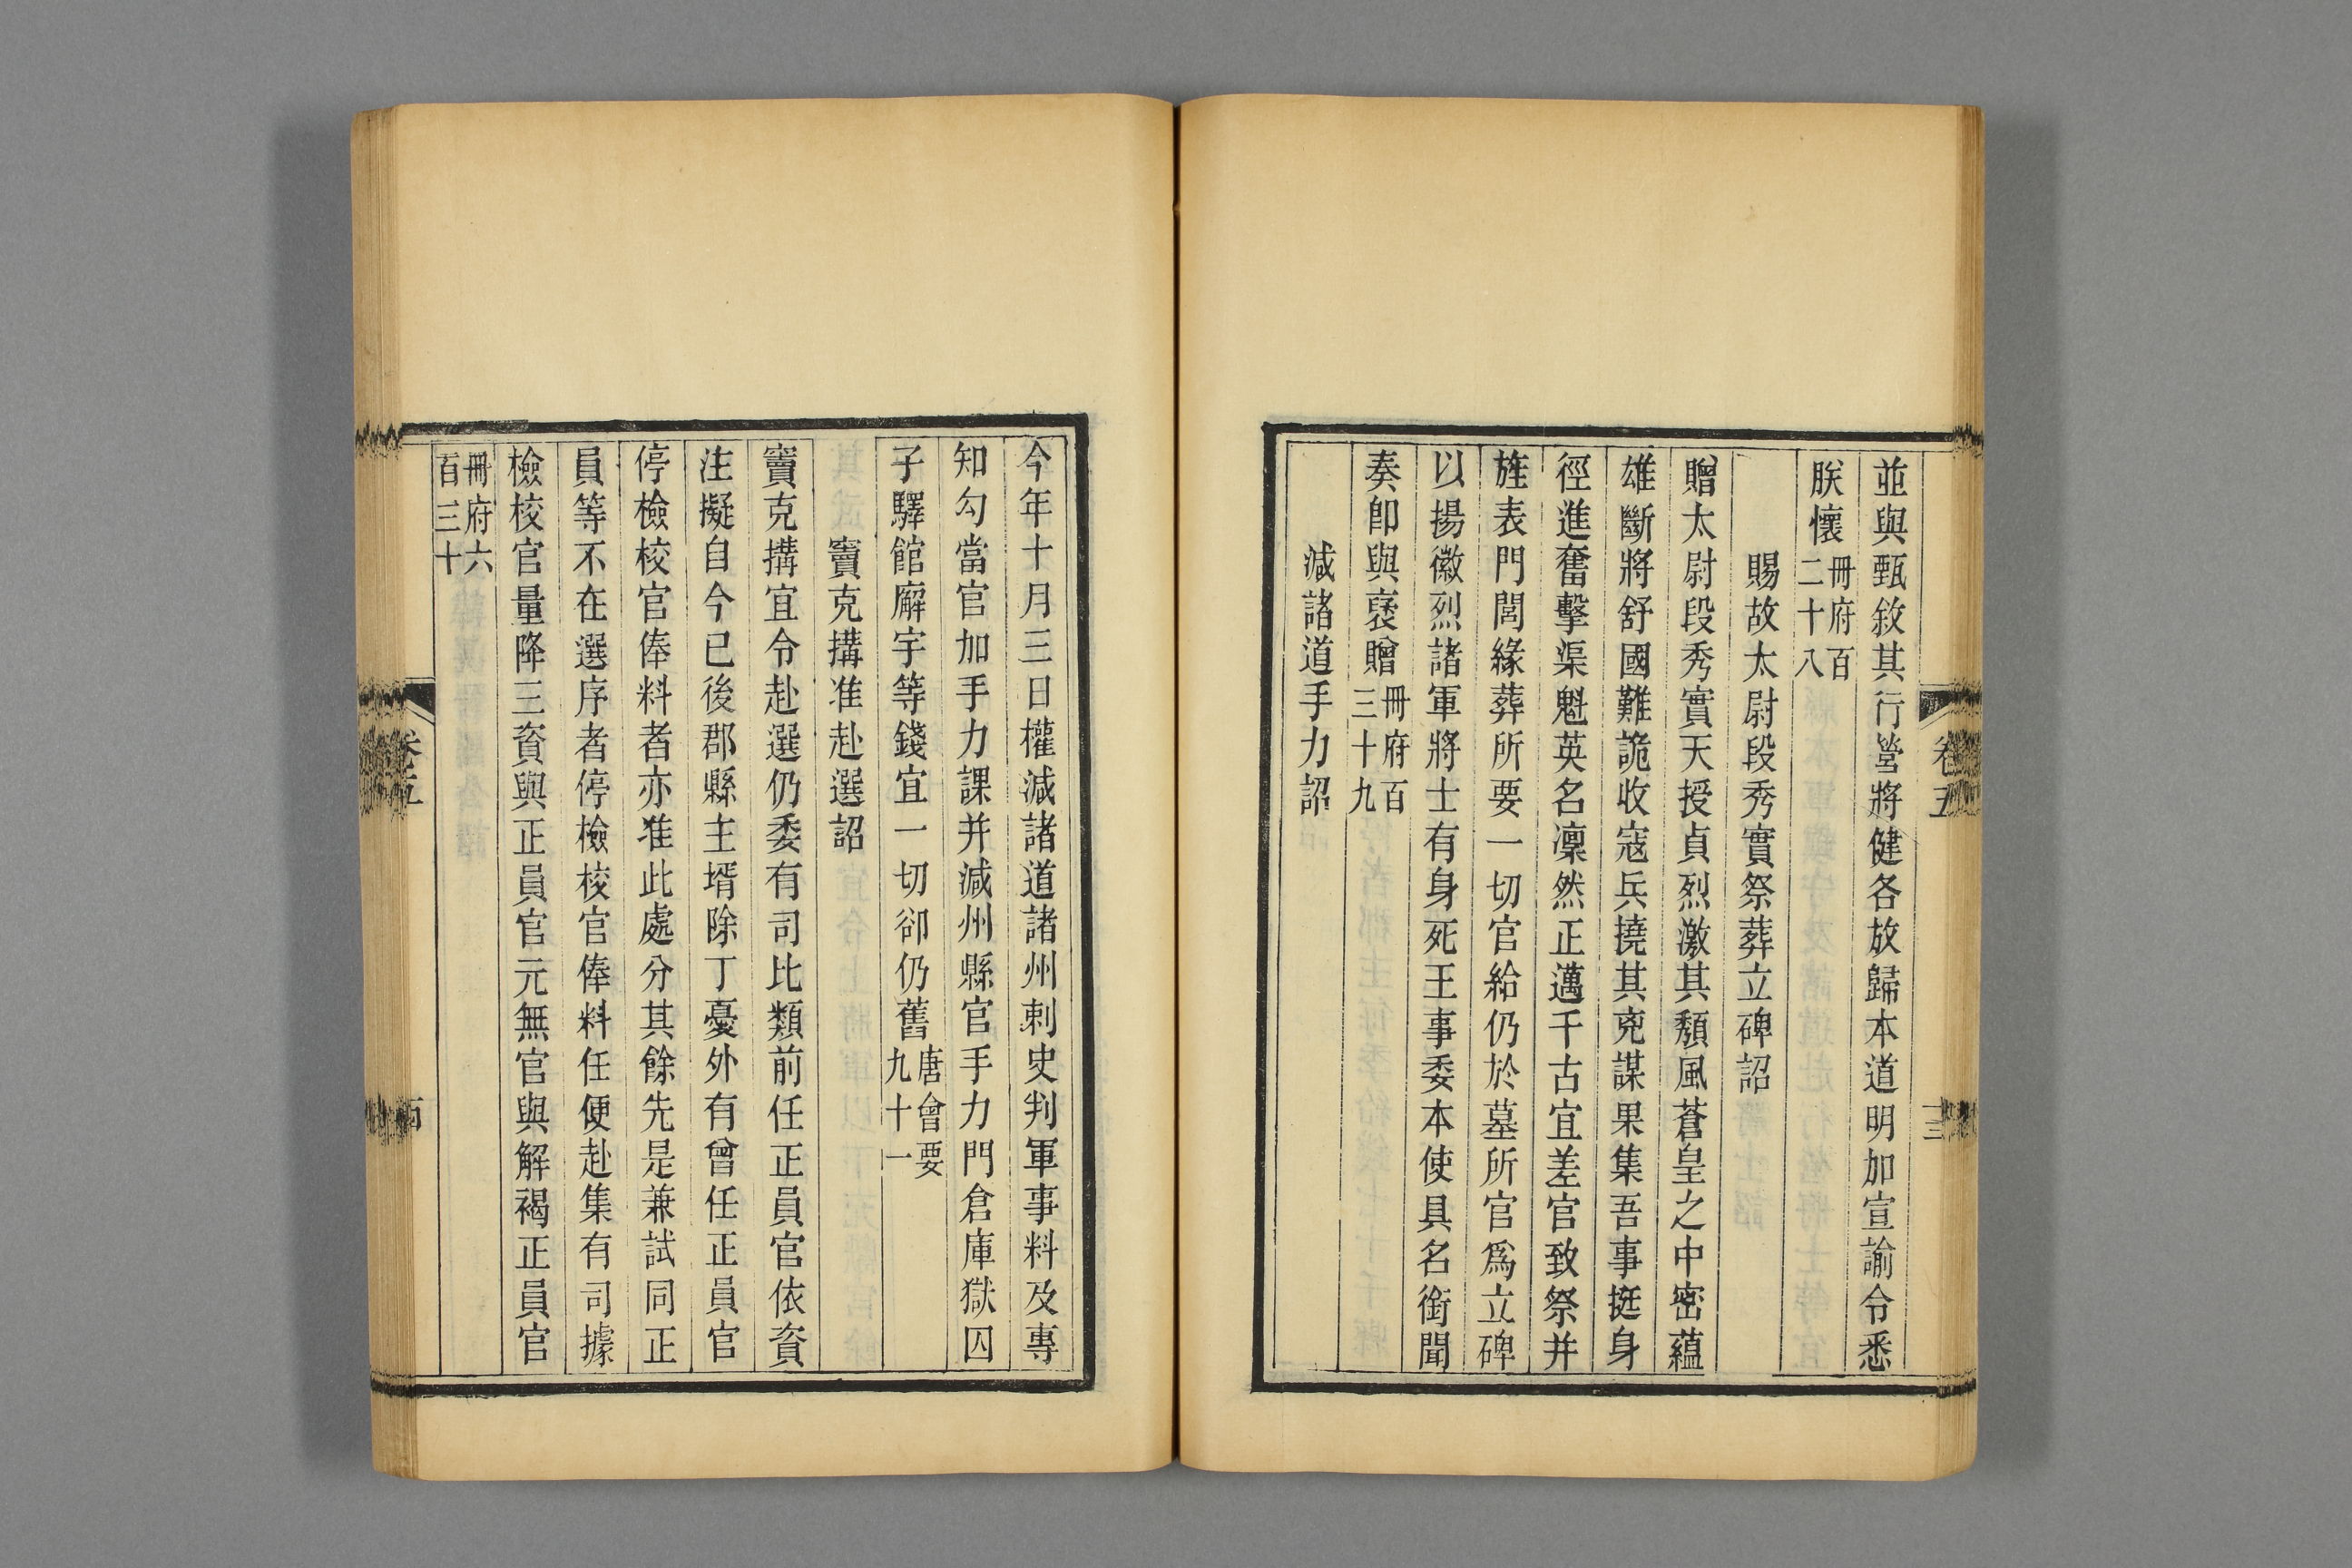 並與甄敘其行營將健各放歸本道明加宣諭令悉
朕懷冊府百二十八
賜故太尉段秀實祭葬立碑詔
贈太尉段秀實天授貞烈激其頹風蒼皇之中密蘊
雄斷將舒國難詭收寇兵撓其兇謀果集吾事挺身
徑進奮擊渠魁英名凜然正邁千古宜差官致祭并
旌表門閭緣葬所要一切官給仍於墓所官爲立碑
以揚徽烈諸軍將士有身死王事委本使具名銜聞
奏卽與褒贈冊府百三十九
減諸道手力詔
卷五
十三
今年十月三日權減諸道諸州刺史判軍事料及專
知勾當官加手力課并減州縣官手力門倉庫獄囚
子驛館廨宇等錢宜一切卻仍舊唐會要九十一
竇克搆准赴選詔
竇克搆宜令赴選仍委有司比類前任正員官依資
注擬自今已後郡縣主壻除丁憂外有曾任正員官
停檢校官俸料者亦准此處分其餘先是兼試同正
員等不在選序者停檢校官俸料任便赴集有司據
檢校官量降三資與正員官元無官與解褐正員官
冊府六百三十
卷五